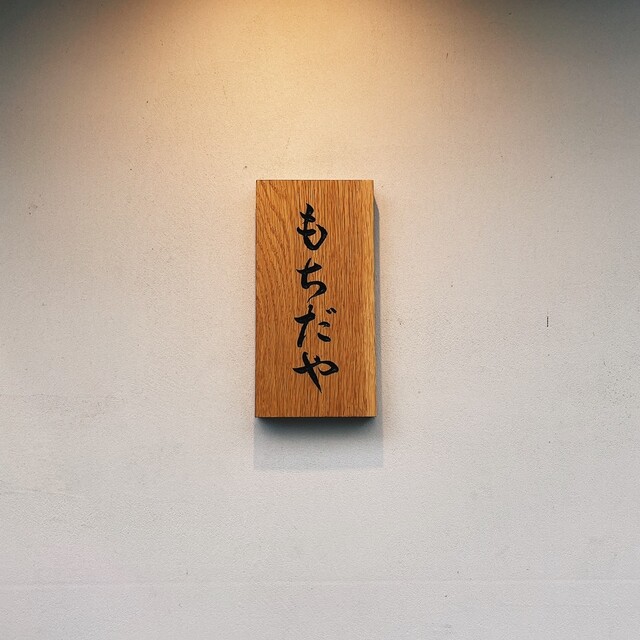 もちだや